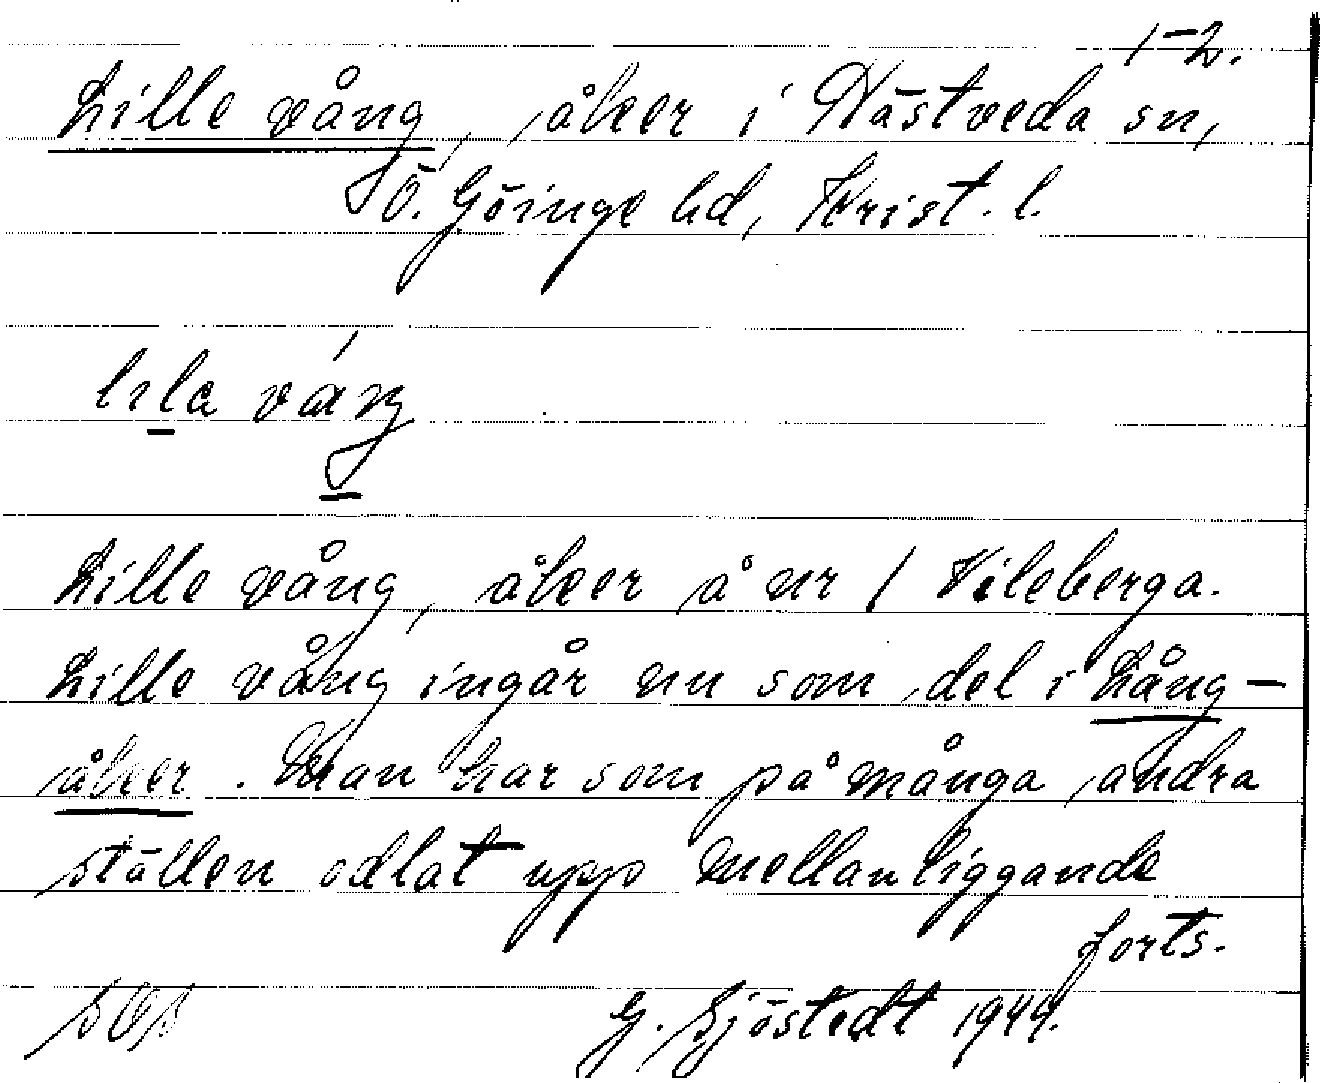 1-2.
Lille vång, åker i Hästveda sn,
Ö. Göinge hd, Krist. l.
Lille vång, åker å nr 1 Vileberga.
Lille vång ingår nu som del i Lång-
åker. Man har som på många andra
ställen odlat upp mellanliggande
forts.
G. Sjöstedt 1944.